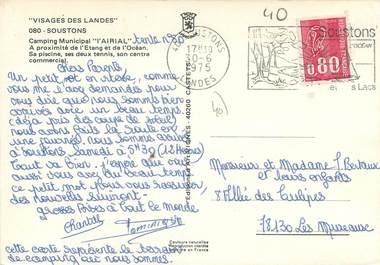 "VISAGES DES LANDES"
080 - SOUSTONS
Camping Municipal "l'AIRIAL"
A proximité de l'Etang et de l'Océan.
Sa piscine, ses deux tennis, son centre
commercial.
tente n°
Chers Parents,
Un petit mot en vitesse, comme
vous me l'avez demandé pour
vous dire que nous sommes bien
arrivés avec un beau temps
nous avons fait la route en
une journée, nous sommes
à Soustons Samedi à 5h30 (12 Heures)
Tout va bien. J'espère que vous
aussi vous avez du beau temps
ce petit mot pour vous rassurer
des nouvelles suivront.
grosses Bises à Tout le monde
Chantal Dominique
cette carte représente le terrain
de camping où nous sommes.
40
40 SOUSTONS
17H30
-6
1975
LANDES
Soustons
Lacs
0,80
40
40260 CASTETS
Couleurs naturelles
Reproduction interdite
Imprimé en France
Monsieur et Madame J. Bertaux
et leurs enfants
8 Allée des Tulipes
78130 Les Mureaux